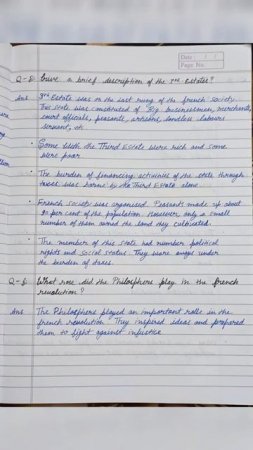 Date
Page No.
Q-5 Give a brief description of the 3rd Estates?
Ans 3rd Estate was on the last rung of the french society.
This state was constituted of Big businessmen, merchants,
court officials, peasants, artisans, landless labours
servant, etc
Some with the Third Estate were rich and some
were poor
The burden of financing activities of the state through
taxes was borne by the Third Estate alone.
French Society was organised. Peasants made up about
90 per cent of the population. However, only a small
number of them owned the land they cultivated.
The member of this state had number political
rights and social status. They were angry under
the burden of taxes.
Q-6 What role did the Philosphers play in the french
revolution?
Ans The Philosphers played an important role in the
french revolution. They inspired ideas and prepared
them to fight against injustice